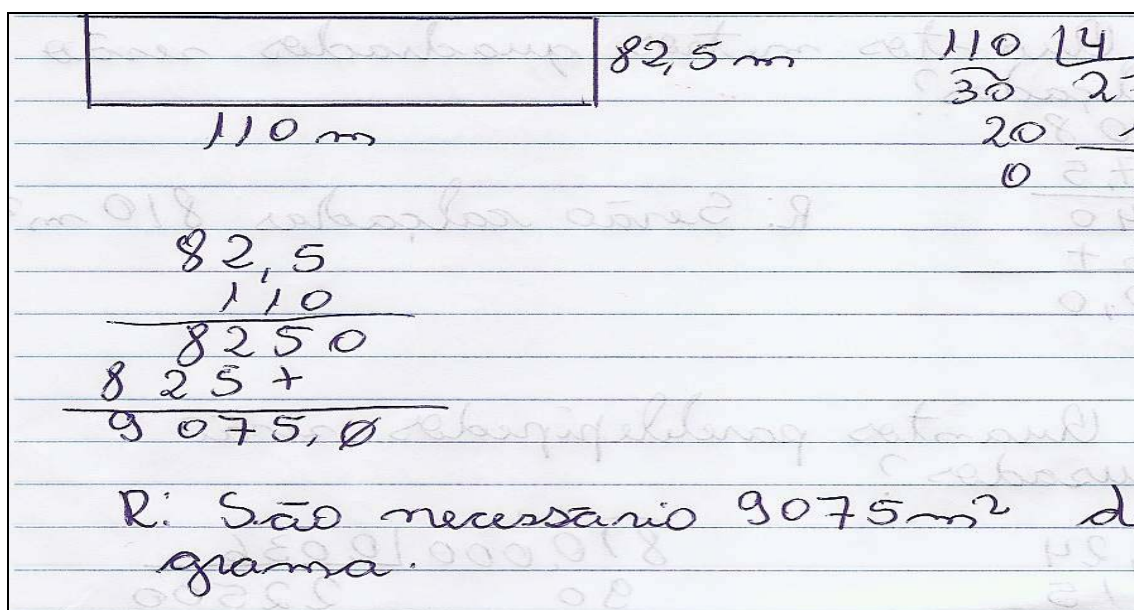 82,5 m
110 m
110 4
30 2
20
0
82,5
110
8250
825+
9075,0
R: São necessário 9075m² d
grama.